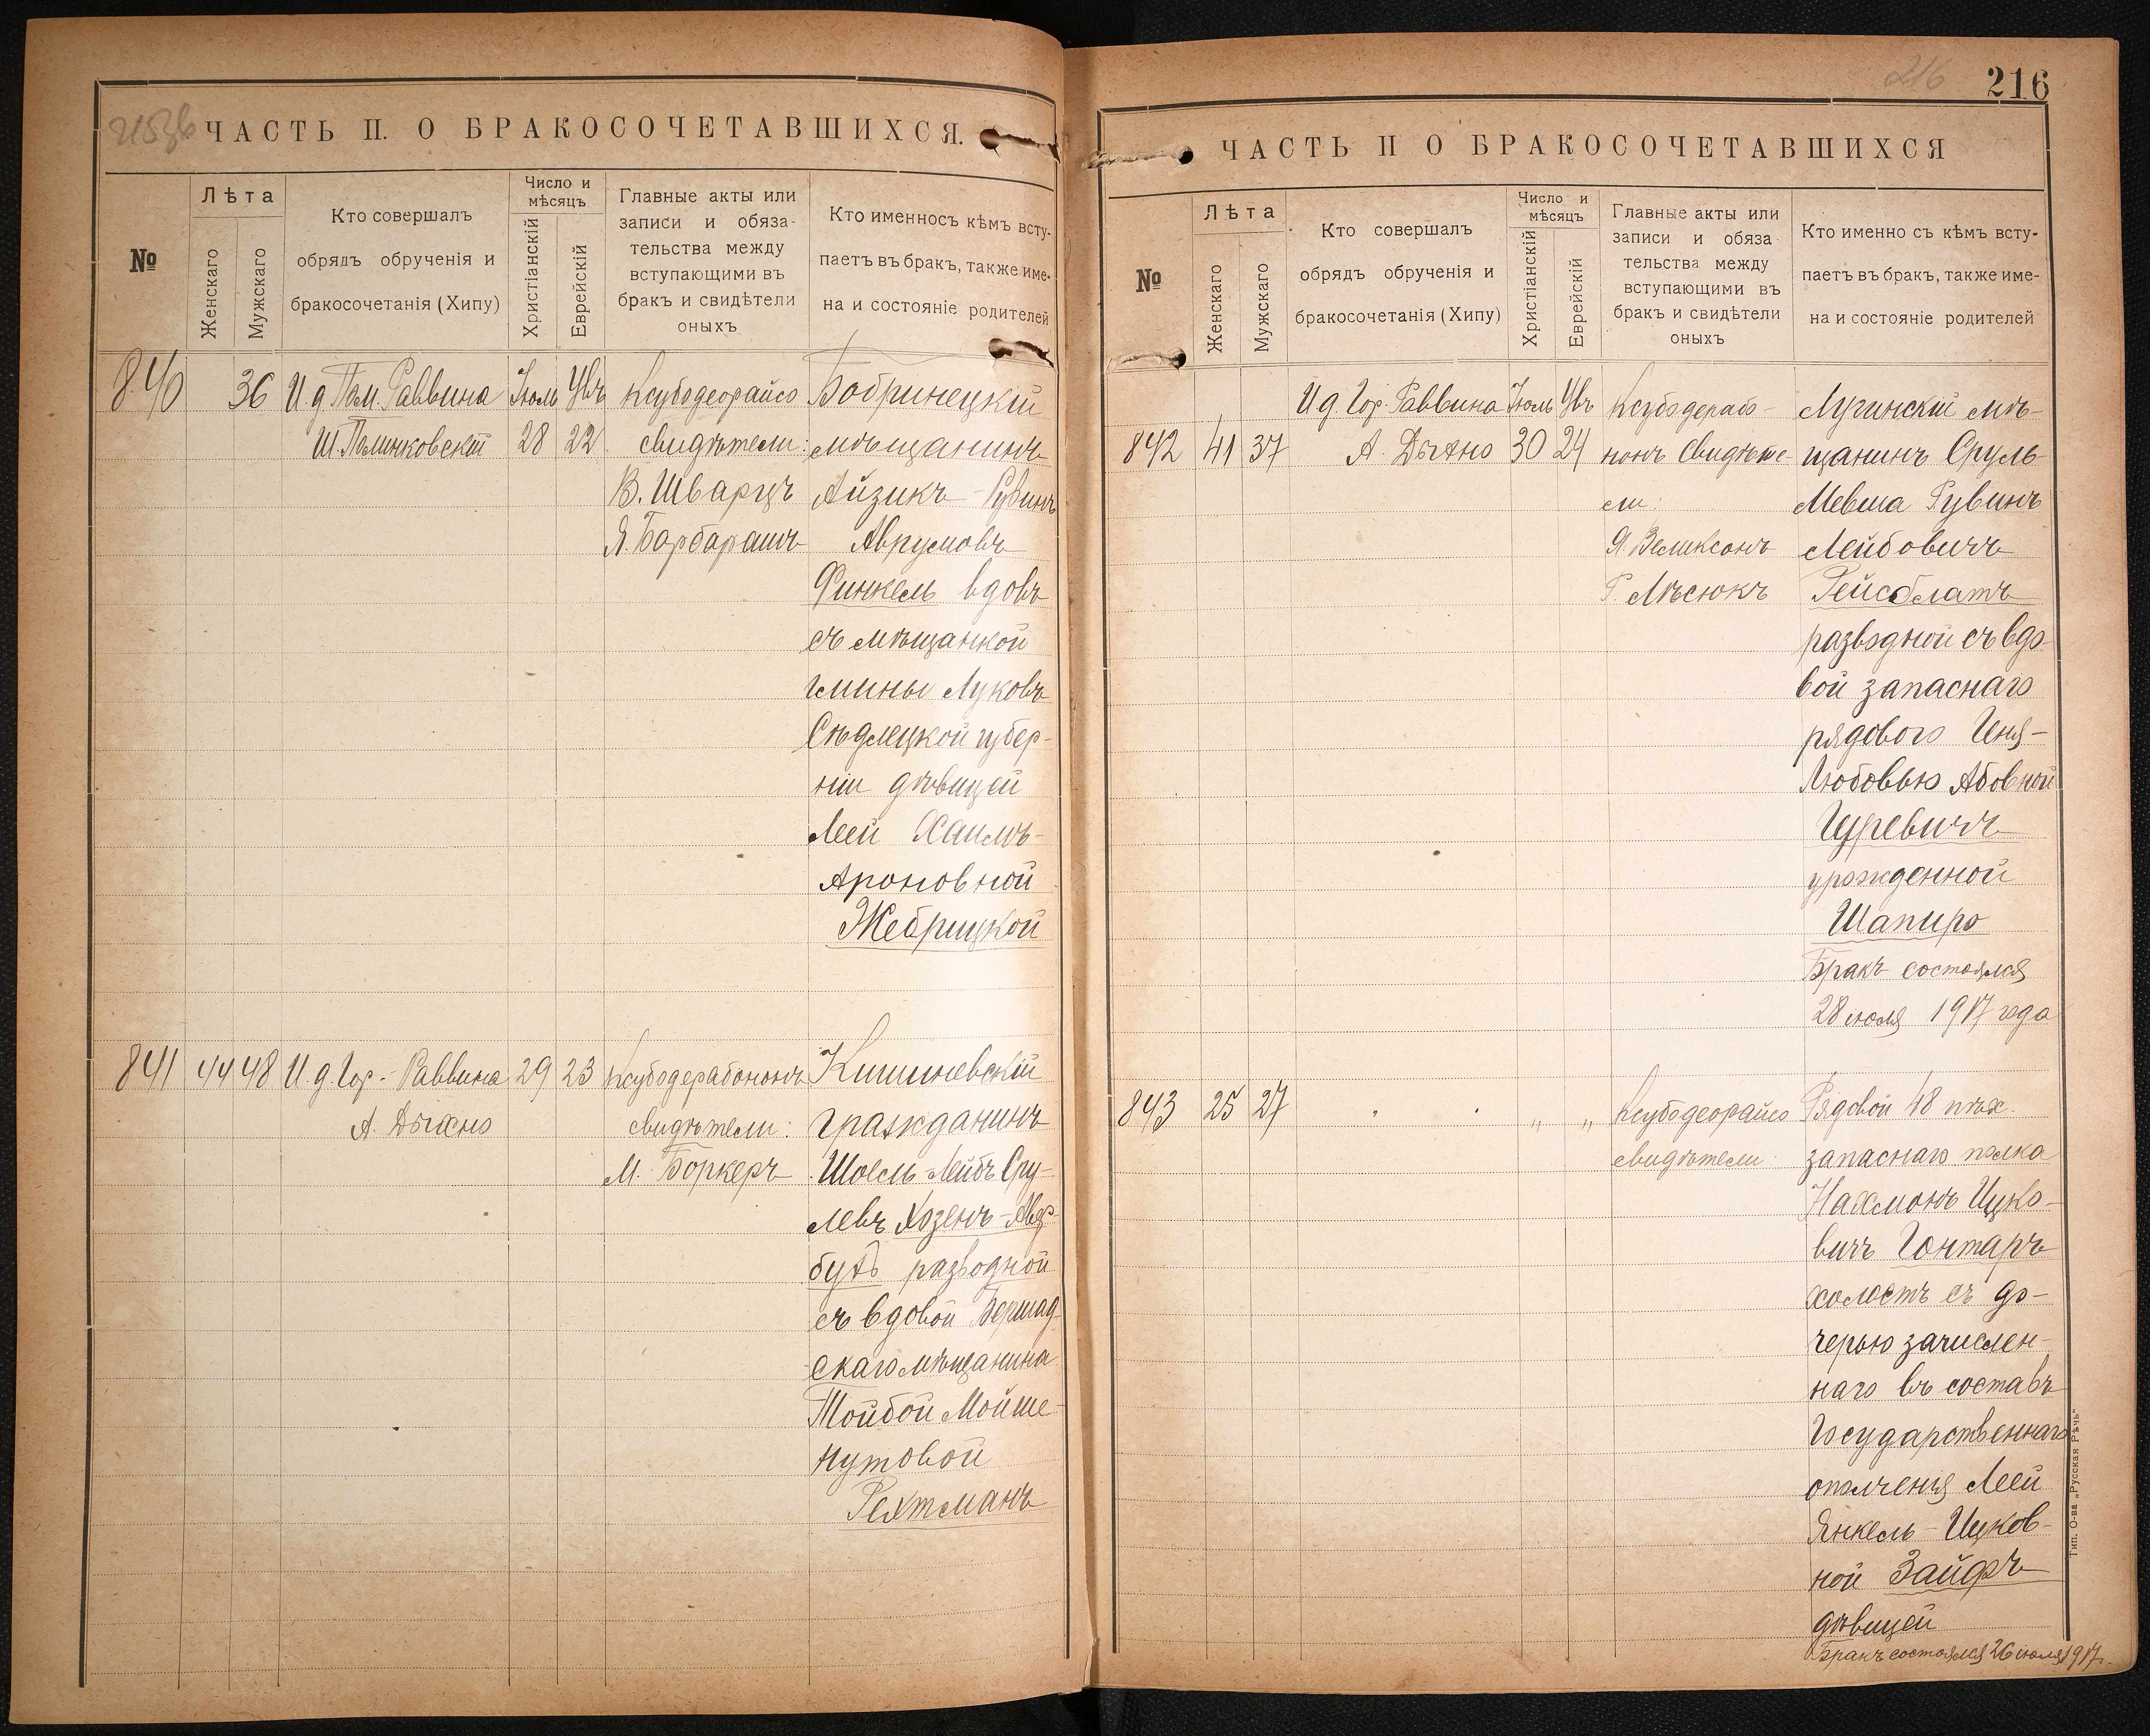 ЧАСТЬ II. О БРАКОСОЧЕТАВШИХСЯ.
№
Лѣта
Женскаго
Мужскаго
Кто совершалъ
обрядъ обрученія и
бракосочетанія (Хипу)
Число и
мѣсяцъ
Христіанскій
Еврейскій
Главные акты или
записи и обяза-
тельства между
вступающими въ
бракъ и свидѣтели
оныхъ
Кто именносъ кѣмъ всту-
паетъ въ бракъ, также име-
на и состояніе родителей
840
36
И. д. Пом. Раввина
Ш. Полинковскій
Іюль
28
22
Ксубодеорайсо
свидѣтели:
В. Шварцъ
Я. Барбарашъ
Бобринецкій
мѣщанинъ
Айзикъ-Рувинъ
Аврумовъ
Финкель вдовъ
съ мѣщанкой
гмины Луковъ
Сѣдлецкой губер-
ніи дѣвицей
Леей Хаимъ-
Ароновной
Жебрицкой
841
44
48
И. д. Гор. Раввина
А. Дыхно
29
23
Ксубодерабононъ
свидѣтели:
М. Боркеръ
Кишиневскій
гражданинъ
Шоель-Лейбъ Сру-
левъ Хозенъ-Авер-
бухъ разводной
съ вдовой Бершад-
скаго мѣщанина
Тойбой Мойше-
Нутовой
Рехтманъ
216
216
ЧАСТЬ II О БРАКОСОЧЕТАВШИХСЯ
№
Лѣта
Женскаго
Мужскаго
Кто совершалъ
обрядъ обрученія и
бракосочетанія (Хипу)
Число и
мѣсяцъ
Христіанскій
Еврейскій
Главные акты или
записи и обяза
тельства между
вступающими въ
бракъ и свидѣтели
оныхъ
Кто именно съ кѣмъ всту-
паетъ въ бракъ, также име-
на и состояніе родителей
842
41
37
И д. Гор. Раввина
А. Дыхно
Іюль
30
24
Ксубодерабо-
нонъ Свидѣте
ли:
Я. Великсонъ
Г. Лѣсюкъ
Лугинскій мѣ-
щанинъ Сруль-
Мевша Рувинъ
Лейбовичъ
Рейсблатъ
разводной съ вдо-
вой запаснаго
рядового Геня-
Любовью Абовной
Гуревичъ
урожденной
Шапиро
Бракъ состоялся
28 июля 1917 года
843
25
27
" "
Ксубодеорайсо
свидѣтели
Рядовой 48 пѣх.
запаснаго полка
Нахмонъ Ицко-
вичъ Гонтаръ
холостъ съ до-
черью зачислен-
наго въ составъ
Государственнаго
ополченія Леей
Янкель-Ицков-
ной Зайфъ
дѣвицей
Бракъ состоялся 26 июля 1917 г.
Тип. О-ва „Русская Рѣчь"